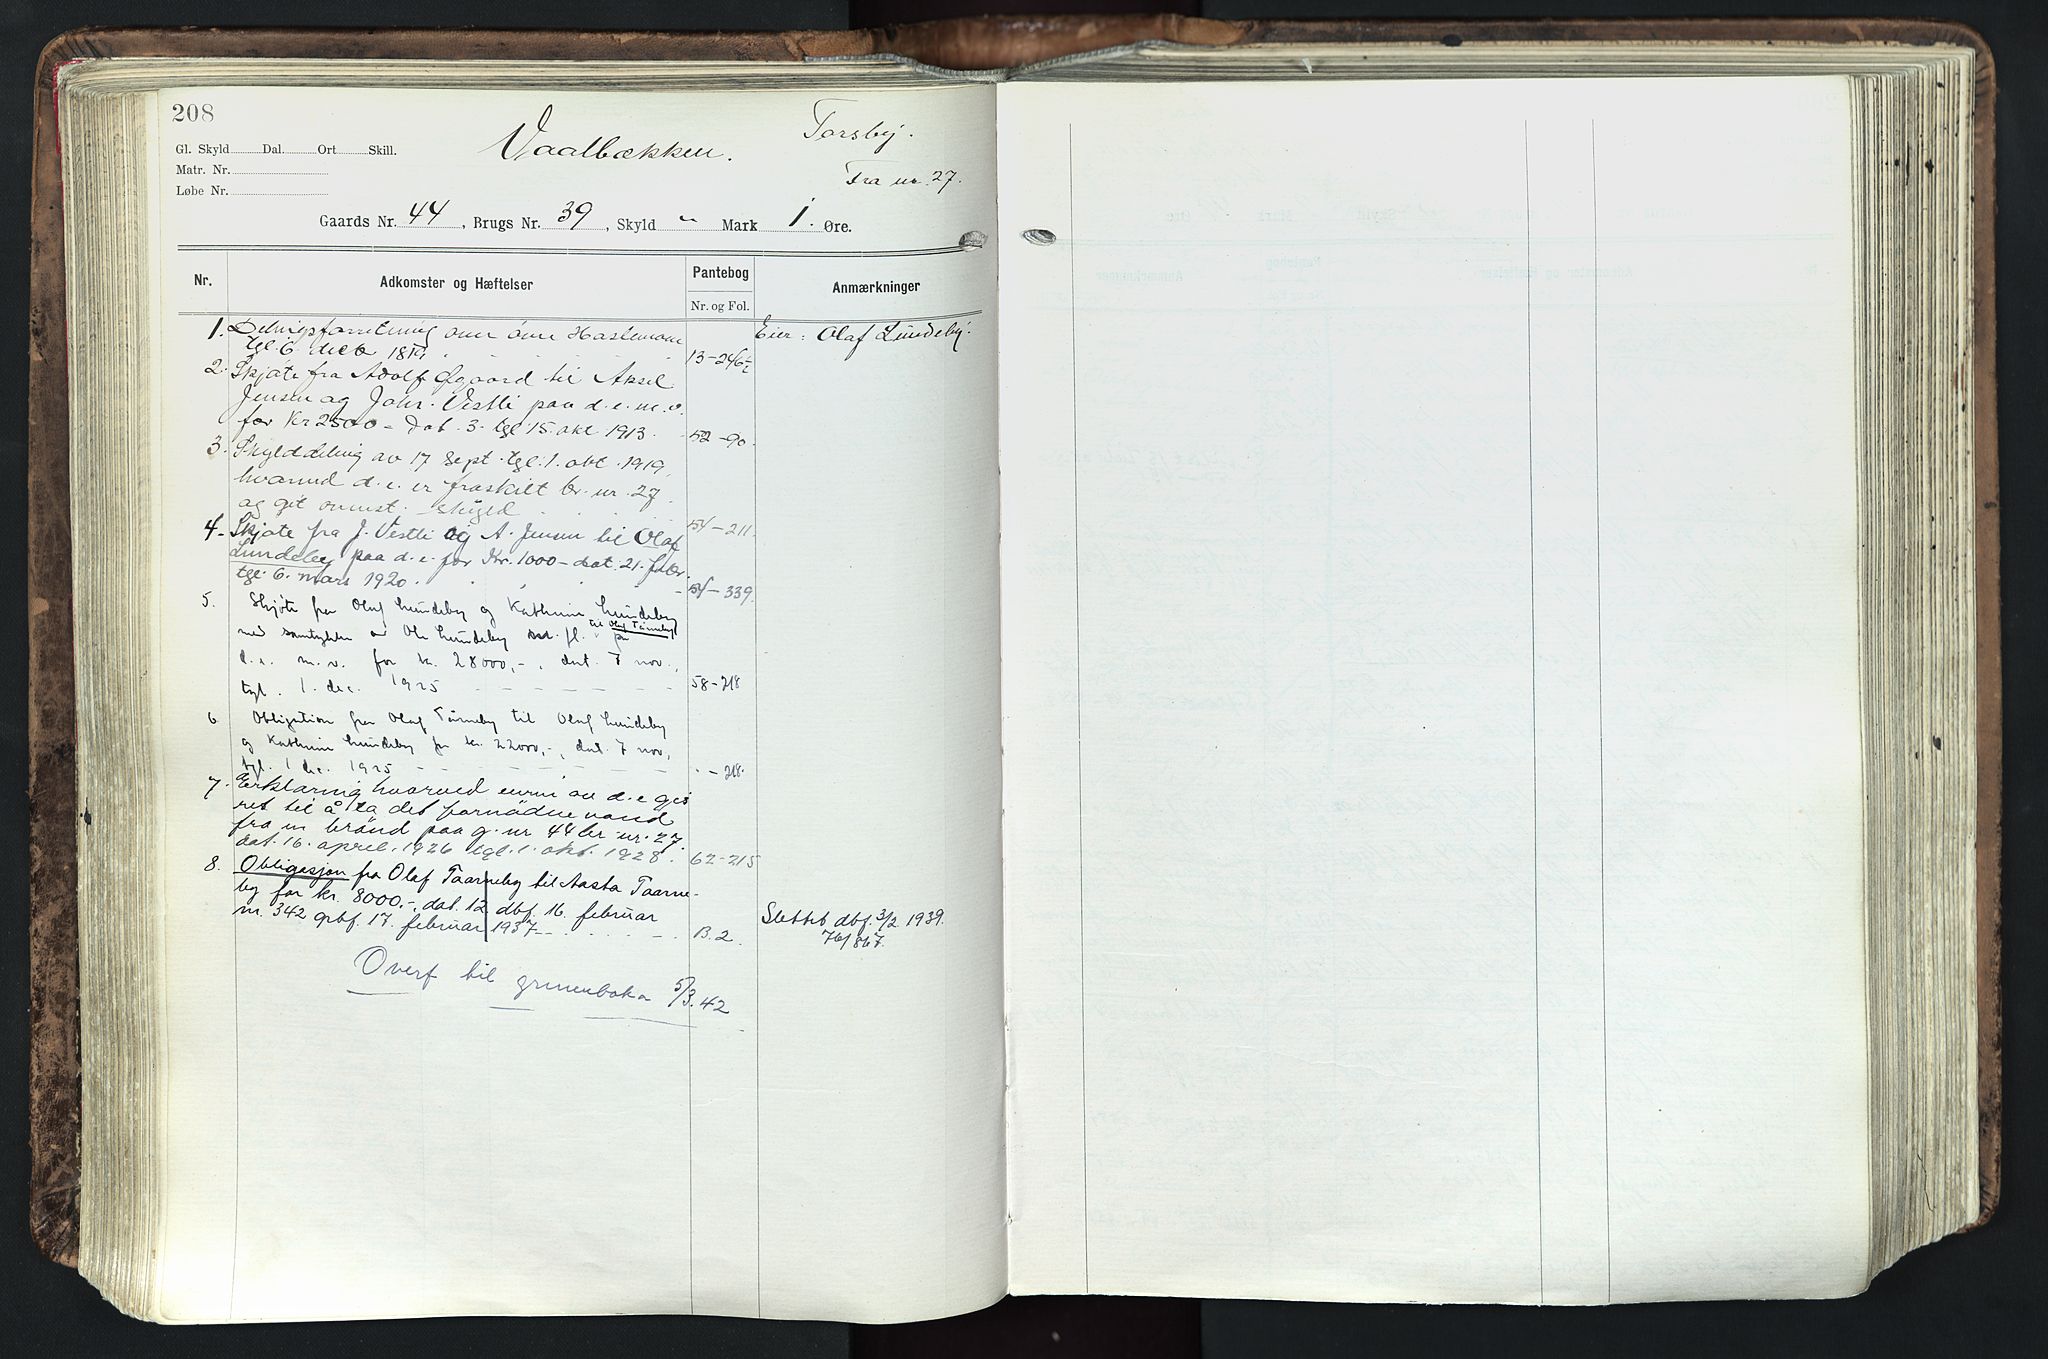 208
Torsby.
Gl. Skyld Dal. Ort Skill.
Vaalbækken.
Matr. Nr.
Fra nr. 27.
Løbe Nr.
Gaards Nr. 44, Brugs Nr. 39, Skyld " Mark 1. Øre.
Nr. Adkomster og Hæftelser Pantebog Anmærkninger
Nr. og Fol.
1. Delingsforretning over Hastemoen Eier: Olaf Lundeby.
tgl. 6. 13-246
2. Skjøte fra Adolf Øgaard til Aksel
Jensen og Johs. Vestli paa d. e. m. v.
for Kr 2500 - Dat. 3. tgl. 15. okt. 1913. 52-90
3. Skylddeling av 17 sept. tgl. 1. okt. 1919,
hvorved d. e. er fraskilt br. nr. 27
og git ovennst. skyld 54-211
4. Skjøte fra J. Vestli og A. Jensen til Olaf
Lundeby paa d. e. for Kr. 1000 - dat. 21. febr.
tgl. 6. mars 1920. 54-339.
5. Skjøte fra Olaf Lundeby og Kathrine Lundeby
til Olaf Tårneby
med samtykke av Ole Lundeby pr
d. e. m. v. for kr. 28000,-, dat. 7 nov.,
tgl. 1. dec. 1925 58-218
6. Obligation fra Olaf Tårneby til Olaf Lundeby
og Kathrine Lundeby for kr. 22000,-, dat. 7 nov,
tgl. 1 dec. 1925 " - 218
7. Erklæring hvorved eieren av d. e gis
ret til å ta det fornødne vand
fra en brønd paa g. nr 44 br. nr. 27.
dat. 16. april. 1926 tgl. 1. okt. 1928. 62-215
8. Obligasjon fra Olaf Taarneby til Aasta Taarne-
by for kr. 8000.-, dat. 12. dbf. 16. februar
nr. 342 grbf. 17. februar 1937 B. 2. Slettet dbf. 3/2 1939.
76/867.
Overf til grunnboka 5/3.42